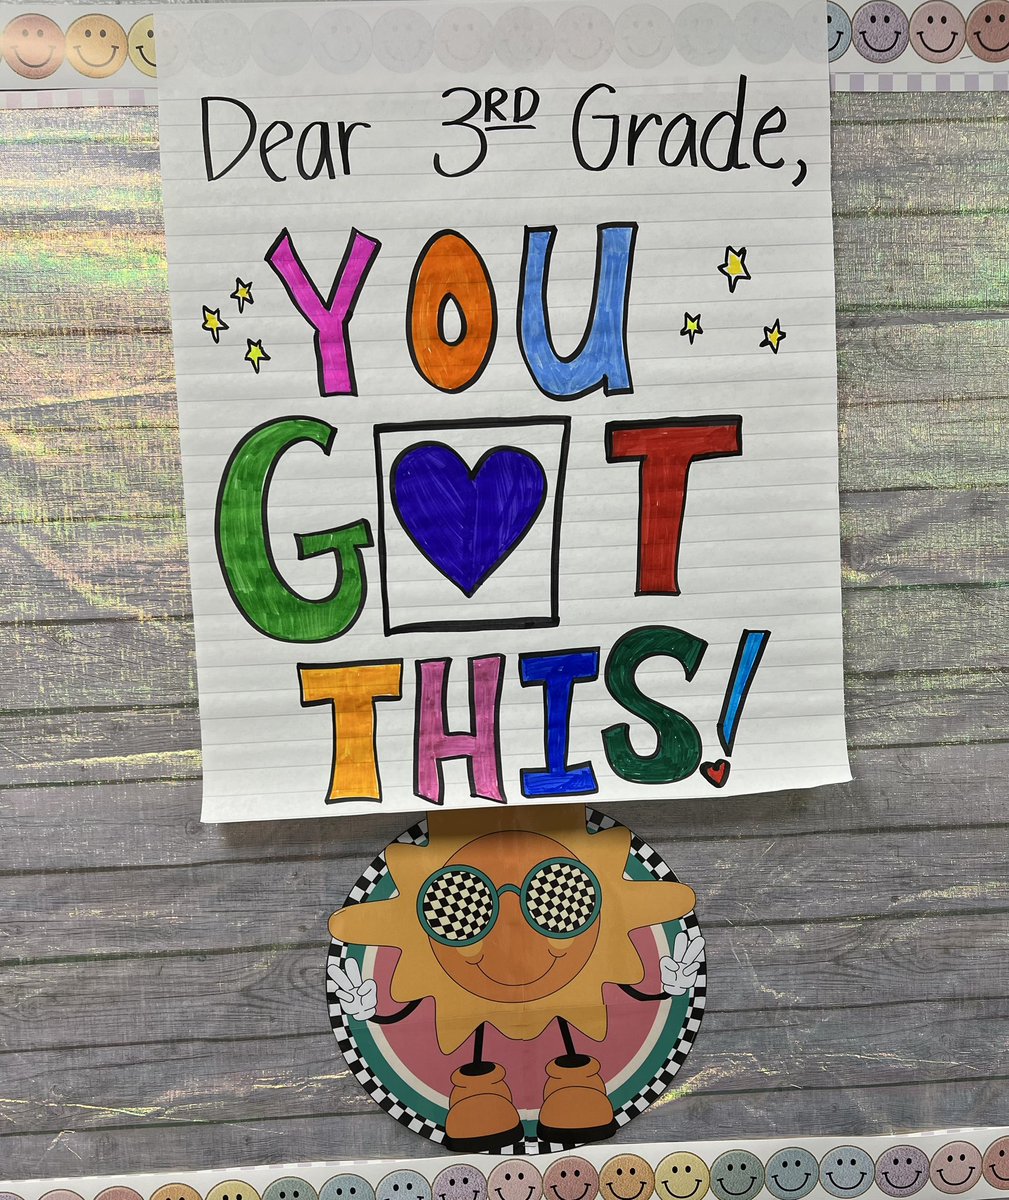 Dear 3RD Grade,
YOU
G💜T
THIS!